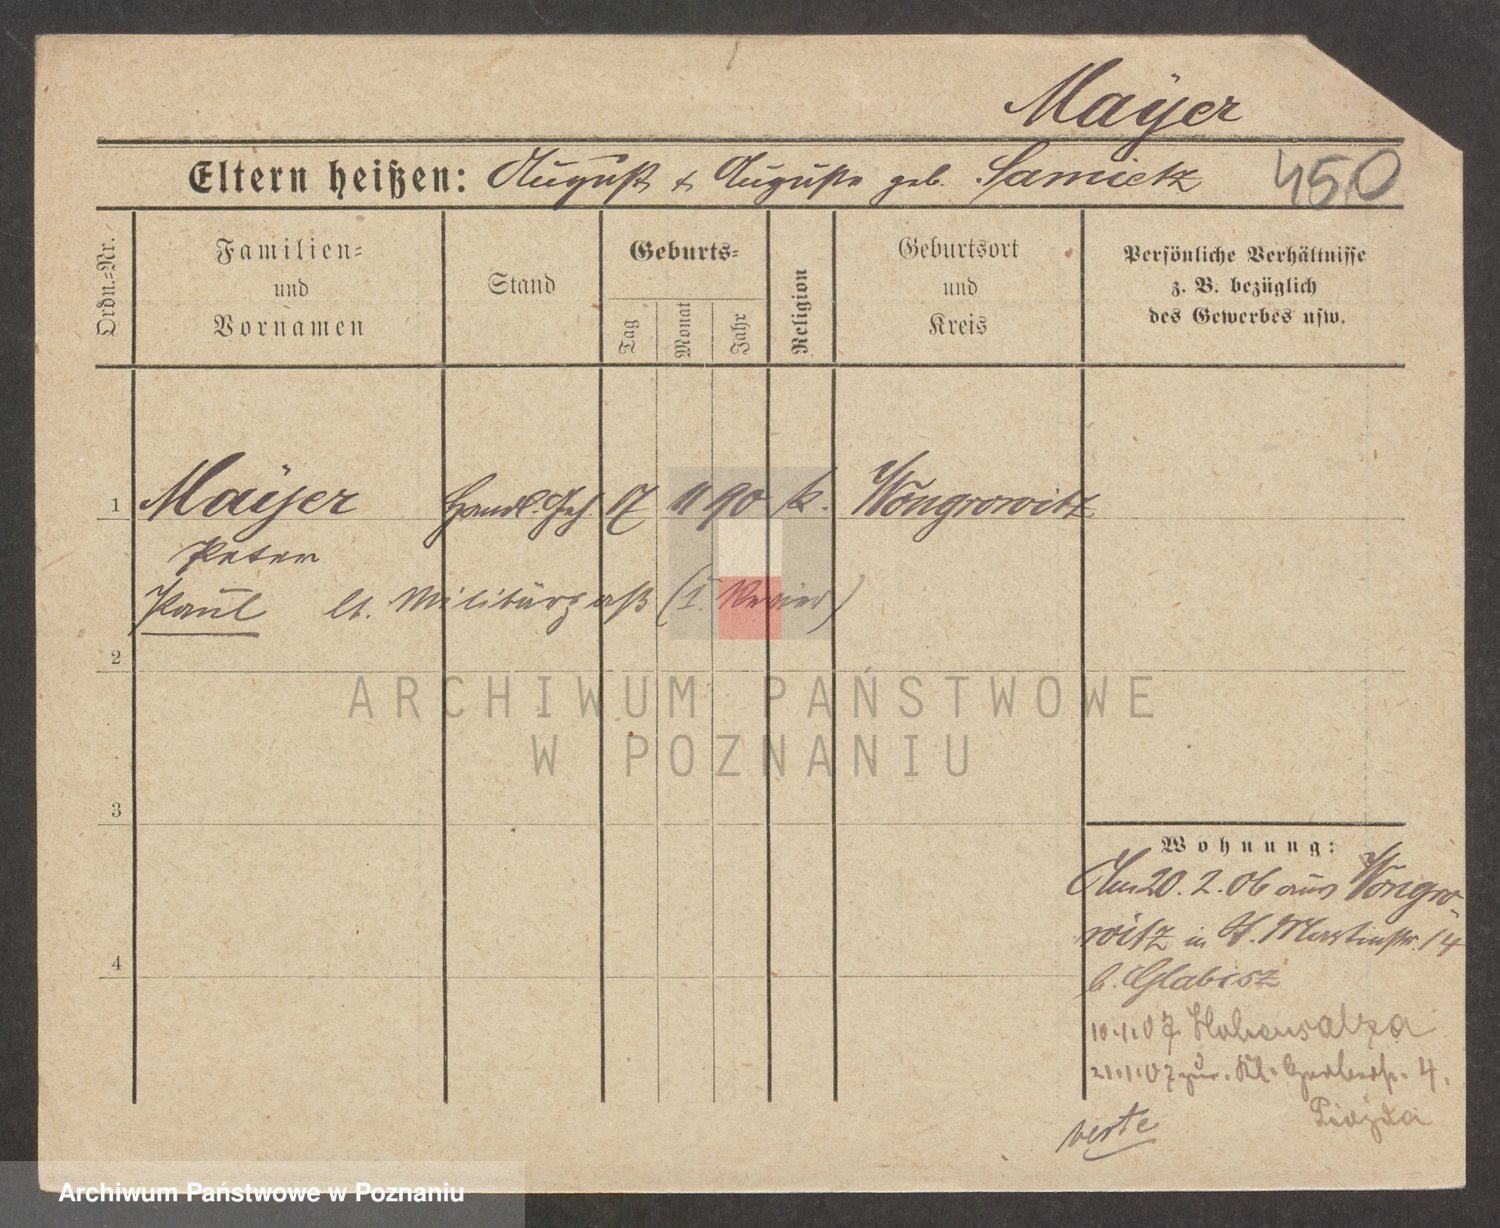 Mayer
Eltern heißen: August & Auguste geb. Samietz 450
Ordn.=Nr.
Familien=
und
Vornamen
Stand
Geburts=
Tag
Monat
Jahr
Religion
Geburtsort
und
Kreis
Persönliche Verhältnisse
z. B. bezüglich
des Gewerbes usw.
1 Mayer Handl. Geh. 17 11 90 k. Wongrowitz
Peter
Paul lt. Militärpaß (I. Revier)
2
ARCHIWUM PAŃSTWOWE
W POZNANIU
3
Wohnung:
Am 20. 2. 06 aus Wongro-
witz in St. Martinstr. 14
b. Glabisz
10.1.07 Hohensalza
21.1.07 zur. Kl. Gerberstr. 4.
4
verte
Archiwum Państwowe w Poznaniu